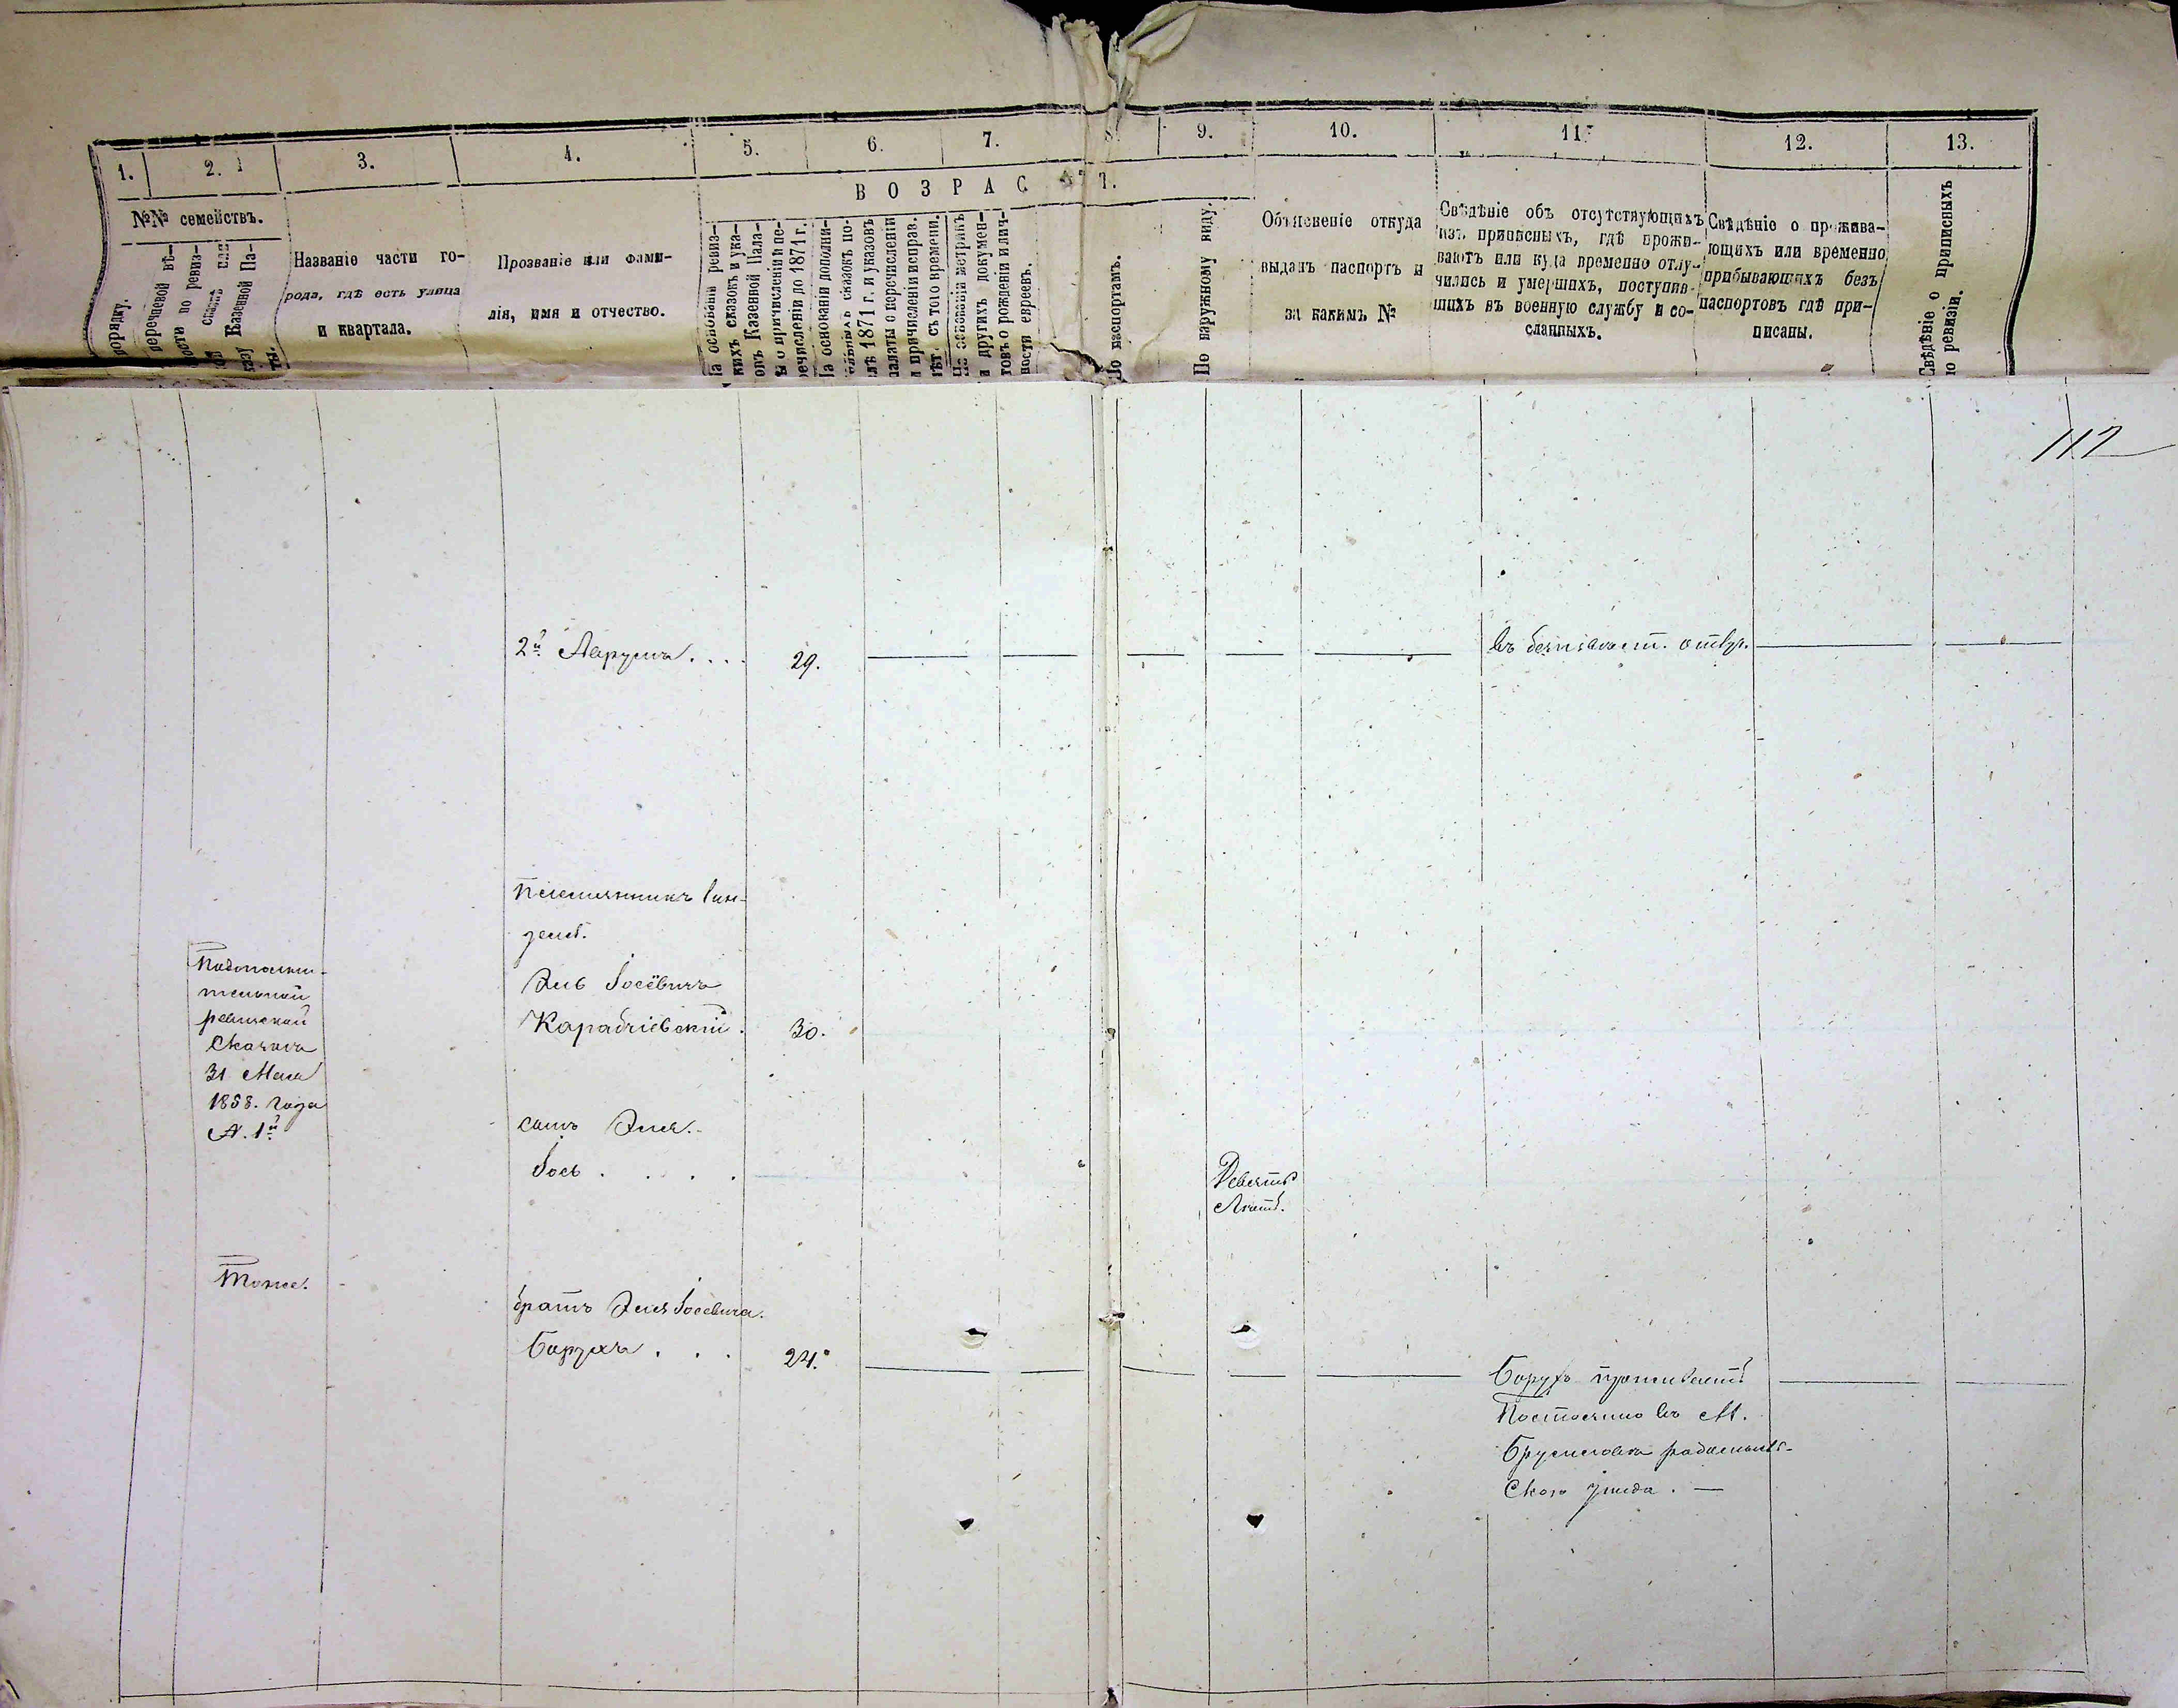 1.
2.
3.
4.
5.
6.
7.
8.
9.
10.
11.
12.
13.
ВОЗРАСТ.
№№ семействъ.
порядку.
перечневой вѣ-
ости по ревиз-
ой сказкѣ или
казу Казенной Па-
ты.
Названіе части го-
рода, гдѣ есть улица
и квартала.
Прозваніе или фами-
лія, имя и отчество.
На основаніи ревиз-
кихъ сказокъ и ука-
овъ Казенной Пала-
ы о причисленіи и пе-
речисленіи до 1871 г.
На основаніи дополни-
ельныхъ сказокъ по-
лѣ 1871 г. и указовъ
палаты о перечисленіи
и причисленіи исправ.
лѣт. съ того времени.
На основаніи метрикъ
и другихъ докумен-
товъ о рожденіи и лич-
ности евреевъ.
По паспортамъ.
По наружному виду.
Объясненіе откуда
выданъ паспортъ и
за какимъ №
Свѣдѣніе объ отсутствующихъ
изъ приписныхъ, гдѣ прожи-
ваютъ или куда временно отлу-
чились и умершихъ, поступив-
шихъ въ военную службу и со-
сланныхъ.
Свѣдѣніе о прожива-
ющихъ или временно
прибывающихъ безъ
паспортовъ гдѣ при-
писаны.
Свѣдѣніе о приписныхъ
по ревизіи.
112
2й Аврумъ . . . .
29.
въ безъизвѣст. отлуч.
племянникъ
Эль Іосевичъ
Карабчіевскій.
30.
По дополни-
тельной
ревизской
Сказкѣ
31 Мая
1858. года
№. 1й
сынъ Эля.
Іось . . . .
Девять
Лѣтъ.
Тоже.
братъ Эля Іосевича.
Борухъ . . .
24.
Борухъ проживаетъ
Постоянно въ М.
Брусиловкѣ радомысль-
Скаго уѣзда. —